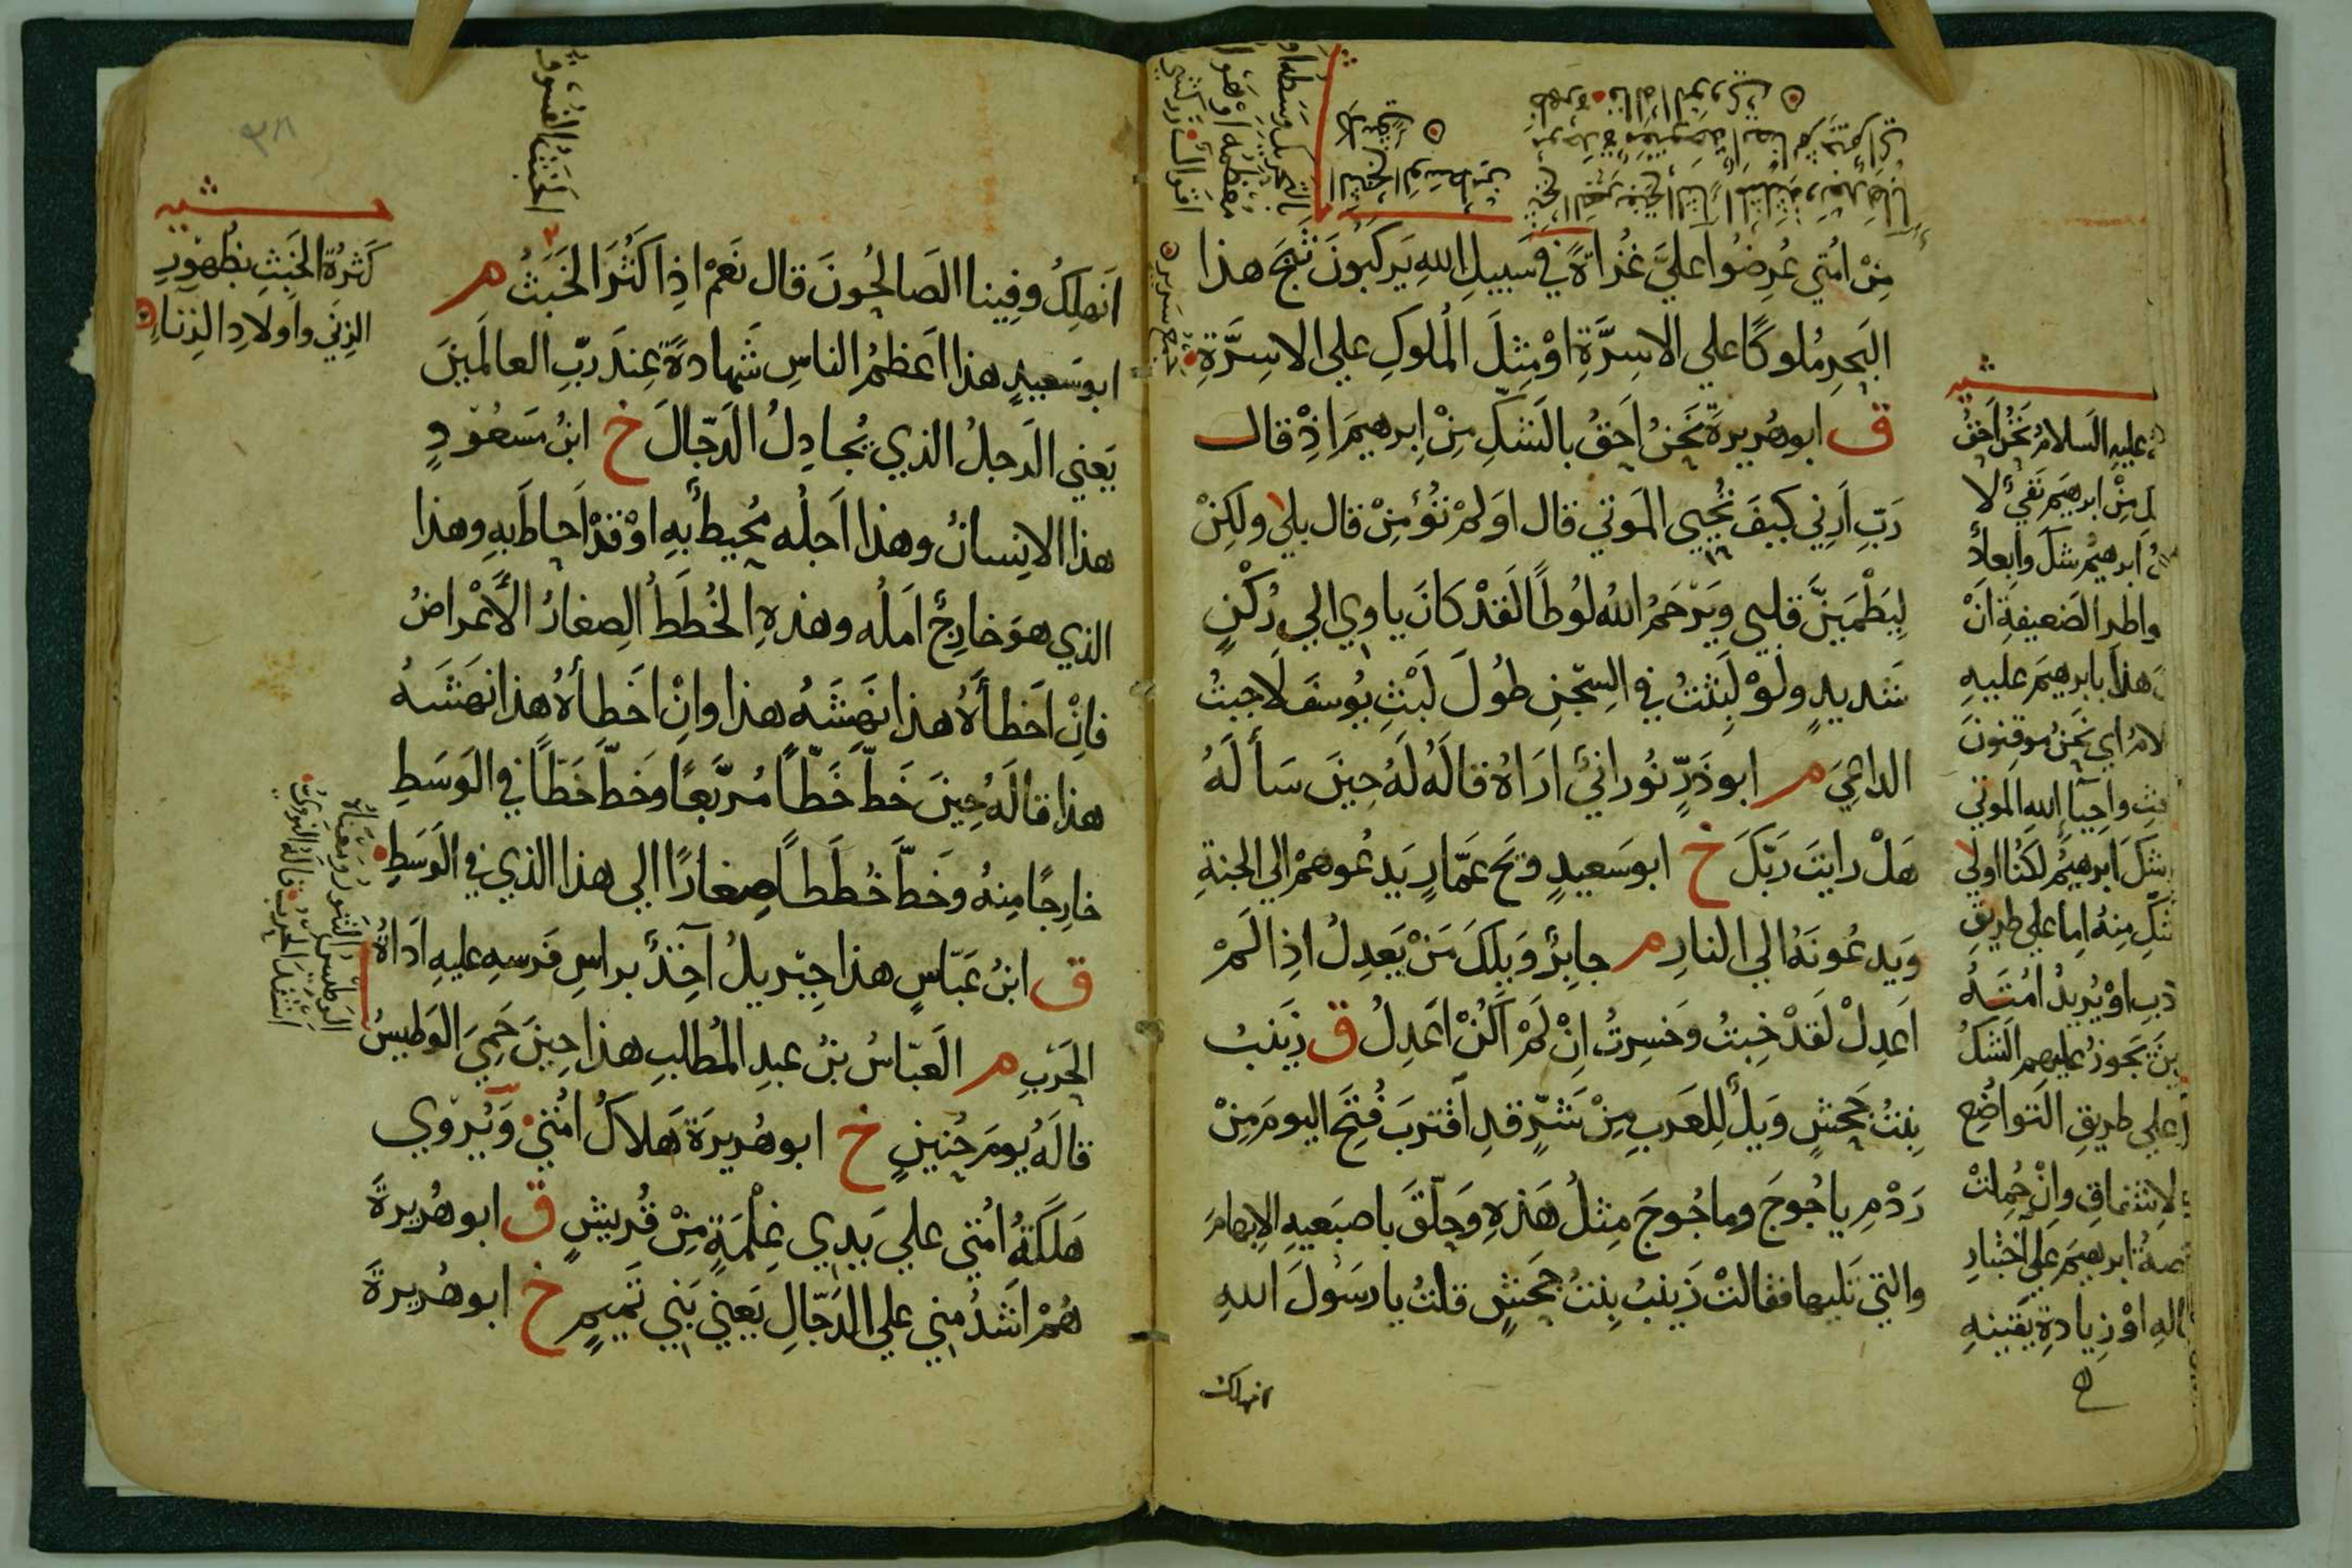 مِنْ امُتي عُرِضُوا عليَّ غُزاةً في سَبيلِ اللهِ يَركبُونَ ثَبَجَ هذا
البَحرِ مُلوكًا علي الاسِرَّةِ اوْ مِثلَ المُلوكِ علي الاسِرَّةِ
ق ابوهُريرةَ نَحنُ اَحَقُ بالشَكِّ مِنْ اِبرهيمَ اِذْ قال
رَبِّ اَرِني كيفَ تُحْيِي المَوتي قال اوَلمْ تُؤمِنْ قال بلي ولكِنْ
لِيَطْمَيِنَّ قلبي ويَرْحَمُ اللهُ لوُطًا لَقَدْ كانَ ياوي الي رُكْنٍ
شَديدٍ ولوْ لَبِثتُ في السِّجْنِ طُولَ لَبْثِ يوُسَفَ لَاجبتُ
الداعِيَ م ابوذَرٍّ نوُرانيٌ ارَاهُ قالَهُ لَهُ حِينَ سَألَهُ
هَلْ رايتَ رَبّكَ خ ابوسَعيدٍ وَيحَ عَمّارٍ يَدعُوهمْ الي الجنةِ
وَيدعُونَهُ الي النارِ م جابِرٌ وَيلكَ مَنْ يَعدِلُ اذِا لَمْ
اَعدِلْ لقَدْ خِبتُ وَخسِرتُ اِنْ لَمْ اَكُنْ اَعدِلُ ق زَينَبُ
بِنتُ جَحشٍ وَيلٌ لِلعَربِ مِنْ شَرٍّ قدِ اَقترَبَ فُتِحَ اليومَ مِنْ
رَدْمِ ياجُوجَ وماجُوجَ مِثلُ هَذِهِ وَحلّقَ باصبَعيهِ الاِبهامَ
والتي تَليها فقالتْ زَينبُ بِنتُ جَحشٍ قلتُ يارسَوُلَ اللهِ
انهلك
عليهِ السَلامُ نَحنُ اَحَقُ
مِنْ ابرهيَم نَفيٌ لا
ابرهيمُ شكَ وابعادٌ
الضَعيفةِ انْ
هذا بابرهيمَ عليهِ
اي نَحنُ موقِنوُنَ
واحِيآ اللهِ المَوتي
شكَ ابرهيمُ لكُنا اولي
مِنهُ اِما علي طريقِ
اوْ يُريدُ امُتَهُ
يَجوزُ عليهم الشَكُ
علي طريقِ التَواضُعِ
وانْ حُملتْ
ابرهيمَ علي اَختبارِ
اوْ زِيادةِ يقينهِ
اَنَهلِكُ وفِينا الصَالحُونَ قال نَعَمْ اذِا كَثُرَ الخَبَثُ م
ابوسَعيدٍ هذا اَعظمُ الناسِ شَهادةً عِندَ ربِّ العالمَينَ
يَعني الرجلُ الذي يُجادِلُ الدَجّالَ خ ابنُ مَسعُودٍ
هذا الاِنسانُ وهذا اَجلُه مُحيطٌ بهِ اوْ قدْ اَحاطَ بهِ وهذا
الذي هوَ خارِجٌ امَلُه وهذهِ الخُطَطُ الصِغارُ الاَعْراضُ
فاِنْ اَخطأَهُ هذا نهَشَهُ هذا وانِْ اخَطأهُ هذا نهَشَهُ
هذا قالَهُ حِينَ خَطَّ خَطّاً مُربَّعًا وخَطَّ خَطّاً في الوَسَطِ
خارِجًا مِنهُ وخَطَّ خُطَطاً صِغارًا الي هذا الذي في الوَسَطِ
ق ابنُ عَبّاسٍ هذا جِبّريلُ آخِذٌ براسِ فَرسِهِ عليهِ اَداةُ
الحَربِ م العَبّاسُ بنُ عبدِ المُطلبِ هذا حِينَ حَمِيَ الوَطيسُ
قالَهُ يومَ حُنينٍ خ ابوهُريرَةَ هَلاكُ امُتي وَيُروي
هَلَكةُ امُتي علي يَدي غِلْمَةٍ مِنْ قُريشٍ ق ابوهُريرةَ
هُمْ اَشَدُ مِني علي الدَجّالِ يَعني بَني تَميمٍ خ ابوهُريرةَ
الخَبَثُ الفُسُوقُ
كَثرةُ الخَبَثِ بظُهوُرِ
الزِني واولادِ الزِناءِ
الوَطيسُ التَنورُ ومَعناهُ
اشتَدَ الحَربُ قالهُ النَوويُ